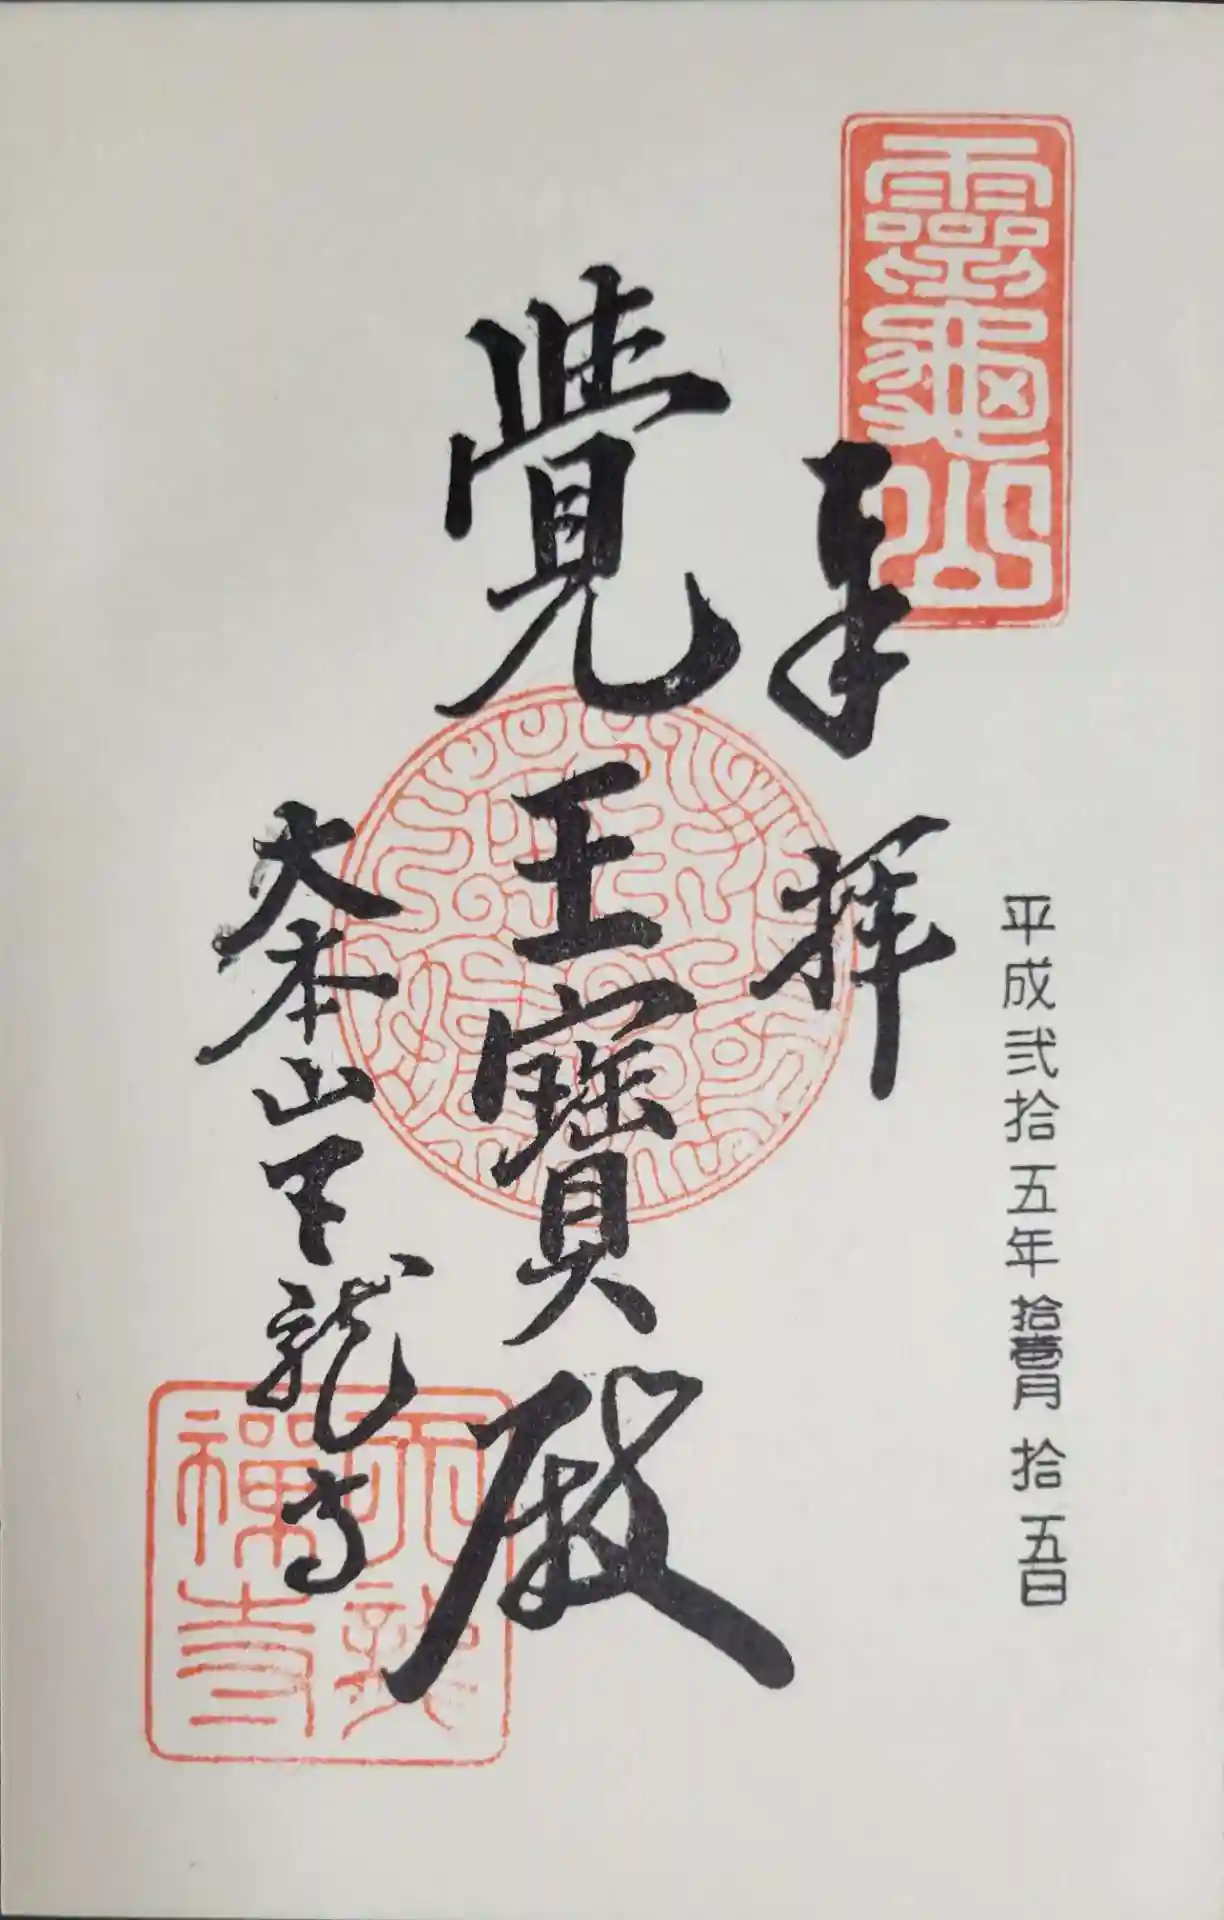 靈龜山
平成弐拾五年拾壹月拾五日
奉拝
覺王寶殿
大本山天龍寺
天龍
禅寺